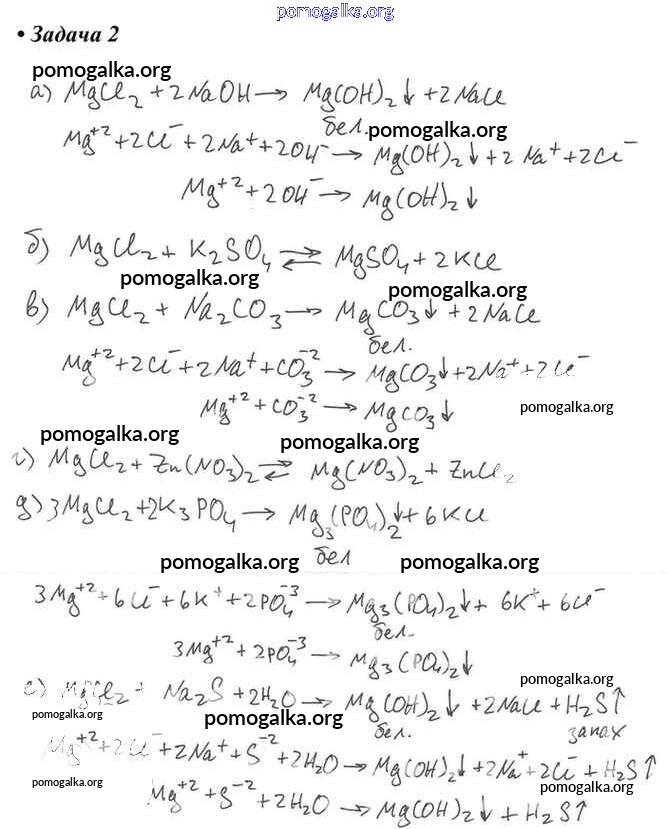 pomogalka.org
• Задача 2
pomogalka.org
а) MgCl₂ + 2NaOH → Mg(OH)₂↓ + 2NaCl
бел.
pomogalka.org
Mg⁺² + 2Cl⁻ + 2Na⁺ + 2OH⁻ → Mg(OH)₂↓ + 2Na⁺ + 2Cl⁻
Mg⁺² + 2OH⁻ → Mg(OH)₂↓
б) MgCl₂ + K₂SO₄ ⇄ MgSO₄ + 2KCl
pomogalka.org
pomogalka.org
в) MgCl₂ + Na₂CO₃ → MgCO₃↓ + 2NaCl
бел.
Mg⁺² + 2Cl⁻ + 2Na⁺ + CO₃⁻² → MgCO₃↓ + 2Na⁺ + 2Cl⁻
Mg⁺² + CO₃⁻² → MgCO₃↓
pomogalka.org
pomogalka.org
pomogalka.org
г) MgCl₂ + Zn(NO₃)₂ ⇄ Mg(NO₃)₂ + ZnCl₂
д) 3MgCl₂ + 2K₃PO₄ → Mg₃(PO₄)₂↓ + 6KCl
бел
pomogalka.org
pomogalka.org
3Mg⁺² + 6Cl⁻ + 6K⁺ + 2PO₄⁻³ → Mg₃(PO₄)₂↓ + 6K⁺ + 6Cl⁻
бел.
3Mg⁺² + 2PO₄⁻³ → Mg₃(PO₄)₂↓
pomogalka.org
е) MgCl₂ + Na₂S + 2H₂O → Mg(OH)₂↓ + 2NaCl + H₂S↑
pomogalka.org
pomogalka.org
бел.
запах
Mg⁺² + 2Cl⁻ + 2Na⁺ + S⁻² + 2H₂O → Mg(OH)₂↓ + 2Na⁺ + 2Cl⁻ + H₂S↑
pomogalka.org
pomogalka.org
Mg⁺² + S⁻² + 2H₂O → Mg(OH)₂↓ + H₂S↑